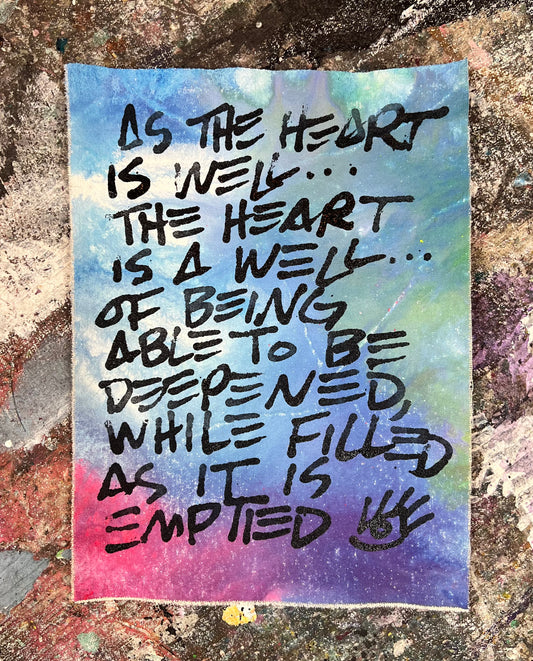 AS THE HEART
IS WELL...
THE HEART
IS A WELL...
OF BEING
ABLE TO BE
DEEPENED,
WHILE FILLED
AS IT IS
EMPTIED